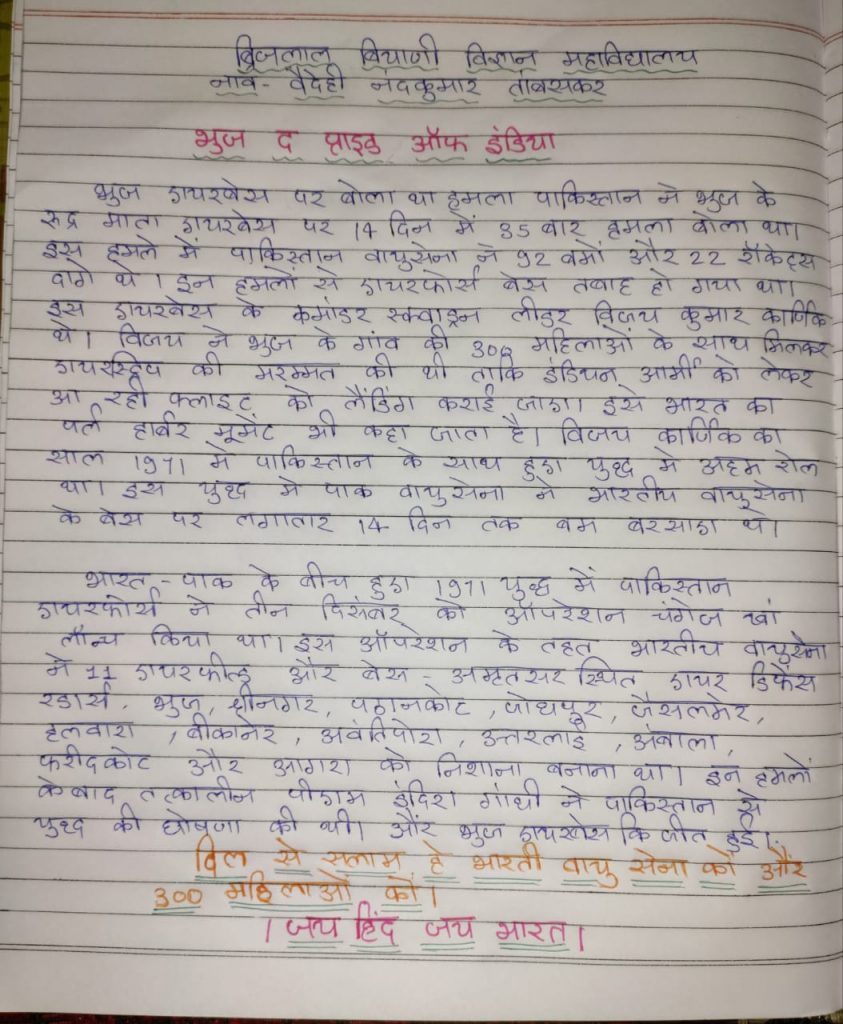 ब्रिजलाल बियाणी विज्ञान महाविद्यालय
नाव - वैदेही नंदकुमार तांबसकर
भुज द प्राइड ऑफ इंडिया
भुज एयरबेस पर बोला था हमला पाकिस्तान ने भुज के
रुद्र माता एयरबेस पर 14 दिन में 35 बार हमला बोला था।
इस हमले में पाकिस्तान वायुसेना ने 92 बमों और 22 रॉकेट्स
दागे थे। इन हमलों से एयरफोर्स बेस तबाह हो गया था।
इस एयरबेस के कमांडर स्क्वाड्रन लीडर विजय कुमार कार्णिक
थे। विजय ने भुज के गांव की 300 महिलाओं के साथ मिलकर
एयरस्ट्रिप की मरम्मत की थी ताकि इंडियन आर्मी को लेकर
आ रही फ्लाइट को लैंडिंग कराई जाए। इसे भारत का
पर्ल हार्बर मूमेंट भी कहा जाता है। विजय कार्णिक का
साल 1971 में पाकिस्तान के साथ हुए युध्द मे अहम रोल
था। इस युध्द मे पाक वायुसेना ने भारतीय वायुसेना
के बेस पर लगातार 14 दिन तक बम बरसाए थे।
भारत - पाक के बीच हुए 1971 युध्द में पाकिस्तान
एयरफोर्स ने तीन दिसंबर को ऑपरेशन चंगेज खां
लॉन्च किया था। इस ऑपरेशन के तहत भारतीय वायुसेना
ने 11 एयरफील्ड और बेस - अमृतसर स्थित एयर डिफेंस
रडार्स, भुज, श्रीनगर, पठानकोट, जोधपुर, जैसलमेर,
हलवारा, बीकानेर, अवंतिपोरा, उत्तरलाई, अंबाला,
फरीदकोट और आगरा को निशाना बनाना था। इन हमलों
के बाद तत्कालीन पीएम इंदिरा गांधी ने पाकिस्तान से
युध्द की घोषणा की थी। और भुज एयरबेस कि जीत हुई।
दिल से सलाम हे भारती वायु सेना को और
300 महिलाओं को।
। जय हिंद जय भारत।